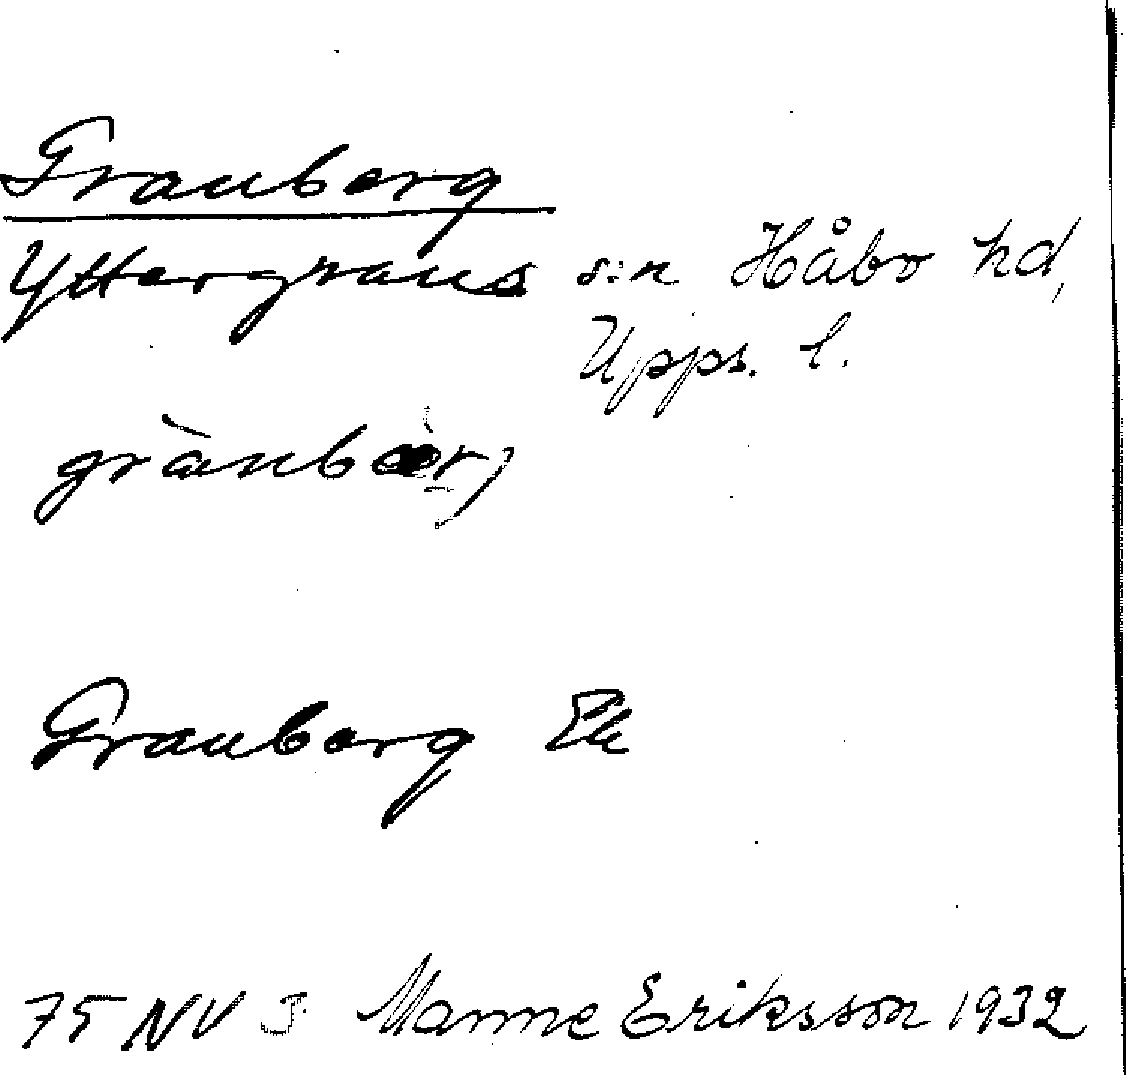 Granberg
Yttergrans s:n Håbo hd,
Upps. l.
grànbær,
Granberg Ek
75 NV J. Manne Eriksson 1932